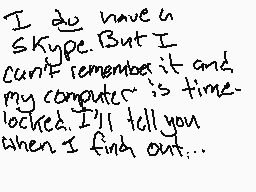 I do have a
skype. But I
can't remember it and
my computer is time-
locked. I'll tell you
when I find out...